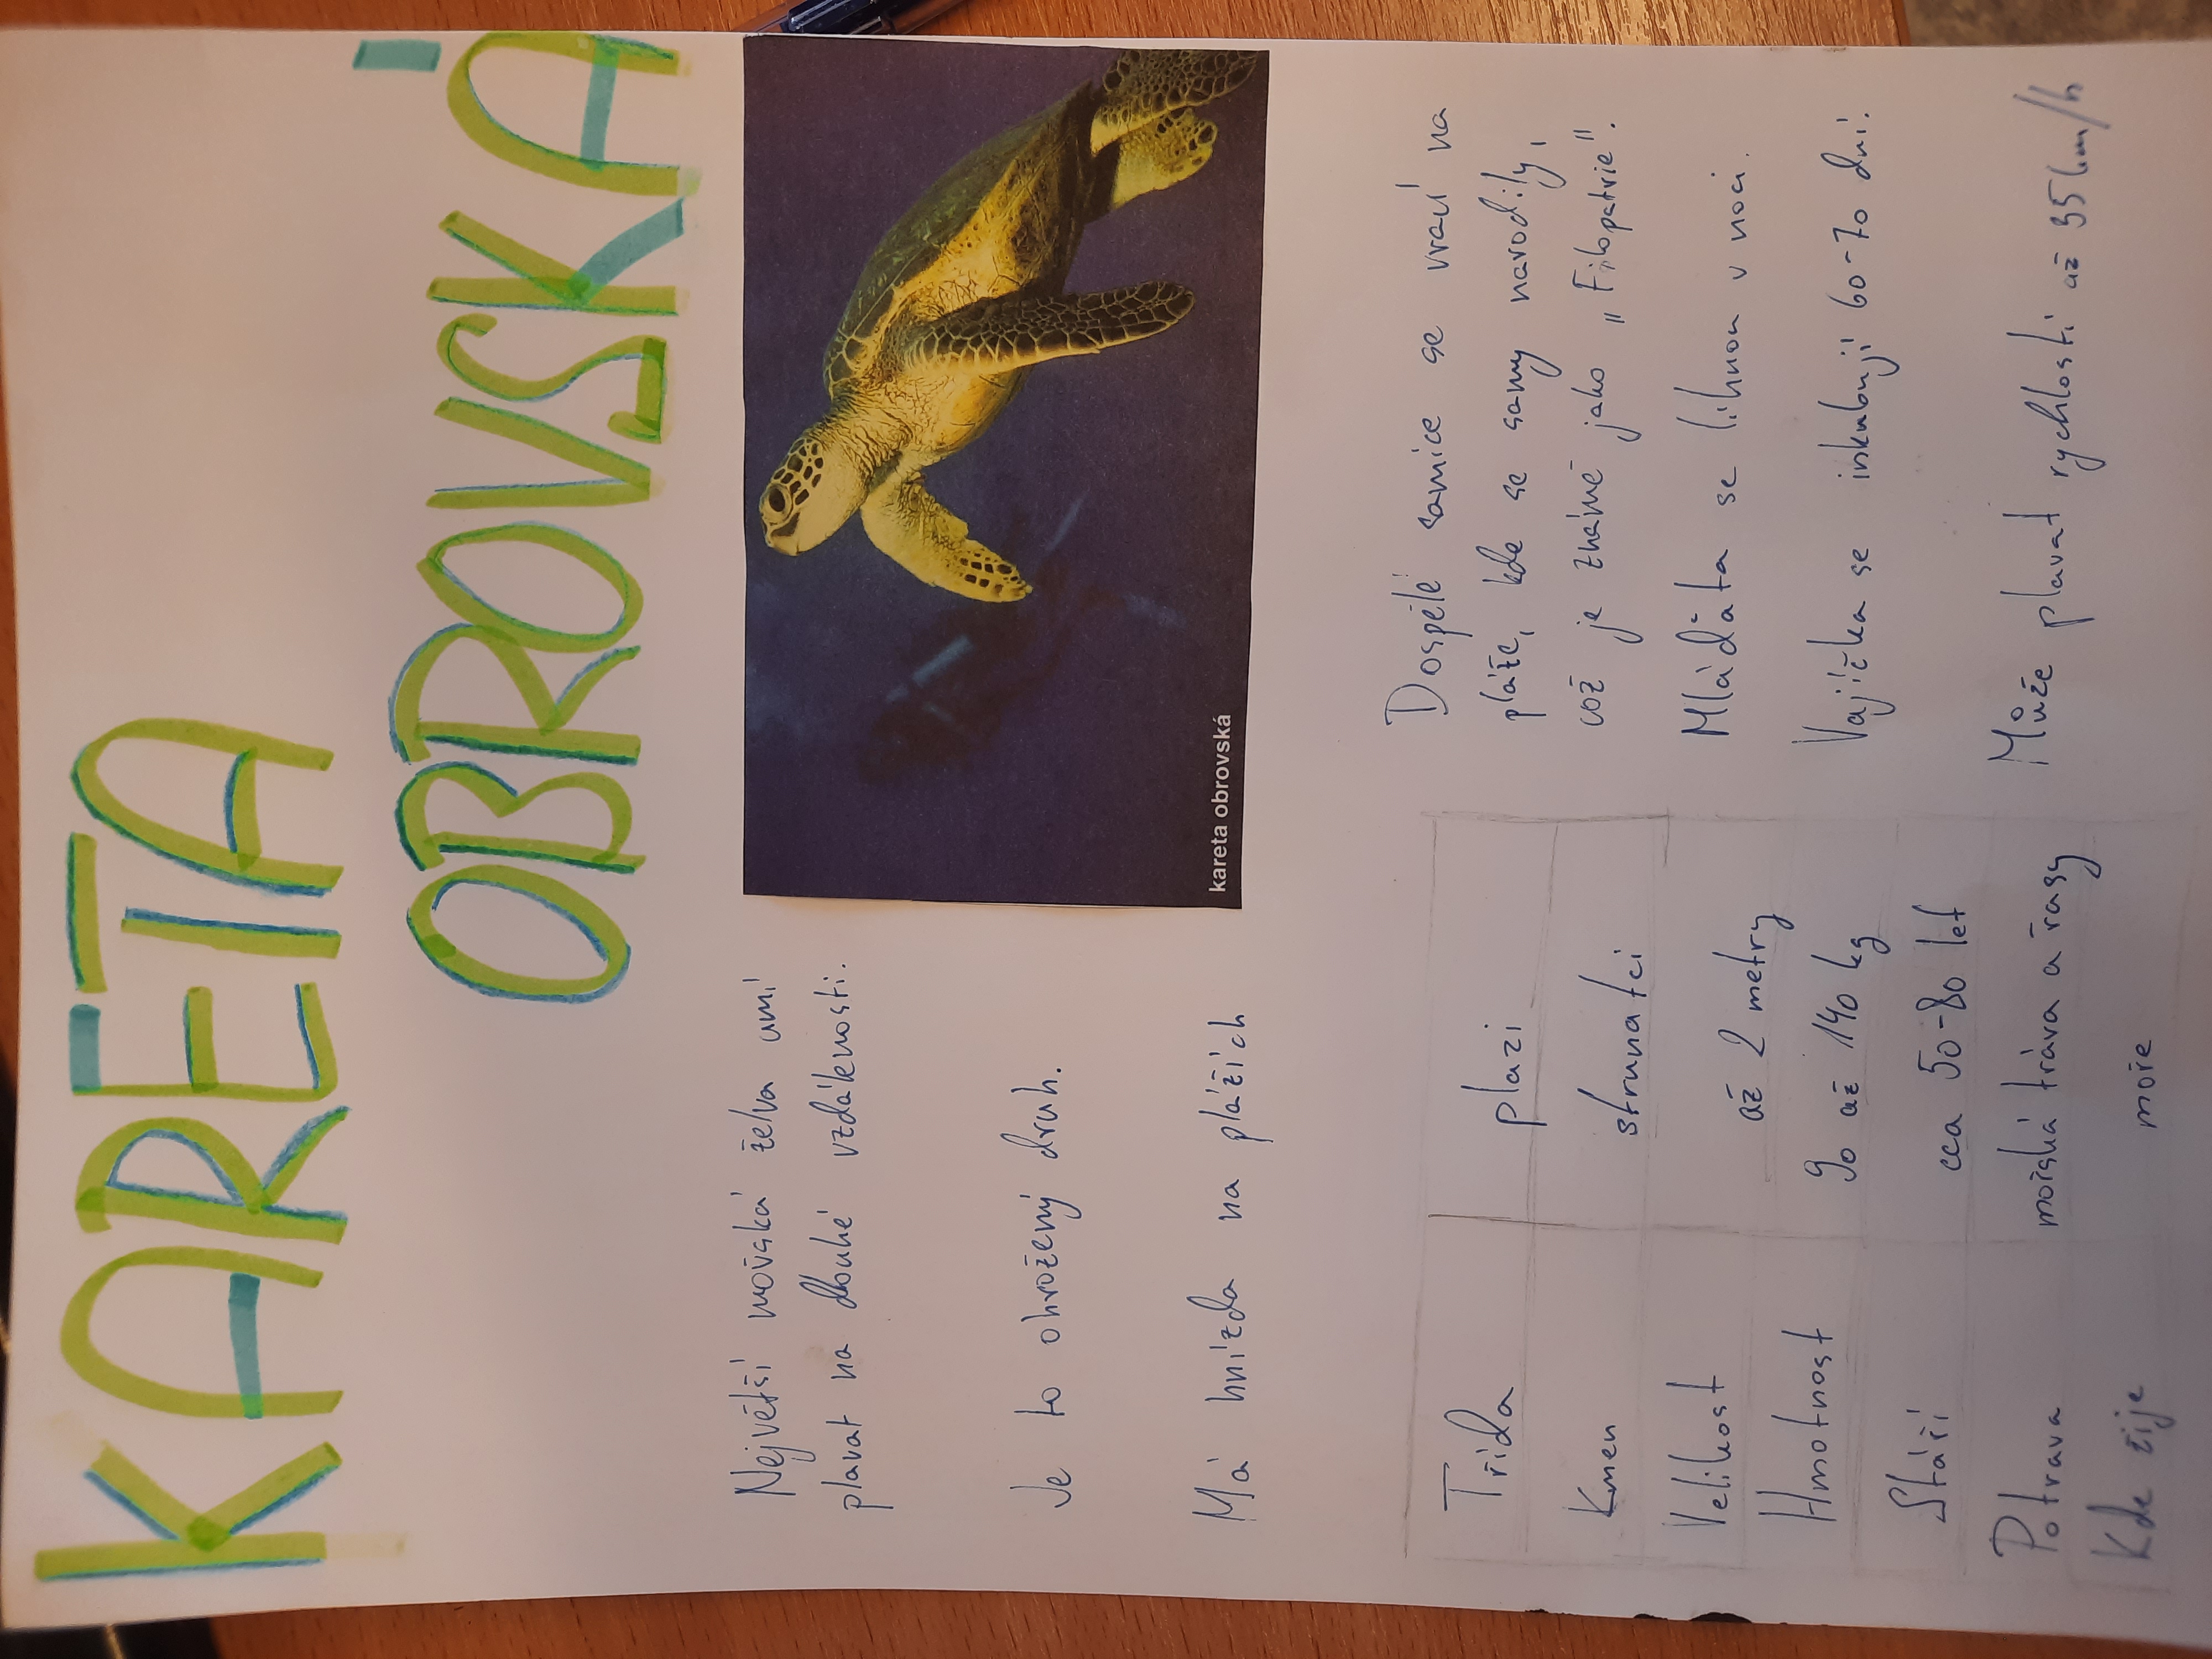 KARETA
OBROVSKÁ
Největší mořská želva umí
plavat na dlouhé vzdálenosti.
Je to ohrožený druh.
Má hnízda na plážích
kareta obrovská
Třída plazi
Kmen strunatci
Velikost až 2 metry
Hmotnost 90 až 140 kg
Stáří cca 50-80 let
Potrava mořská tráva a řasy
Kde žije moře
Dospělé samice se vrací na
pláže, kde se samy narodily,
což je známé jako „Filopatrie".
Mláďata se líhnou v noci.
Vajíčka se inkubují 60-70 dní.
Může plavat rychlostí až 35 km/h